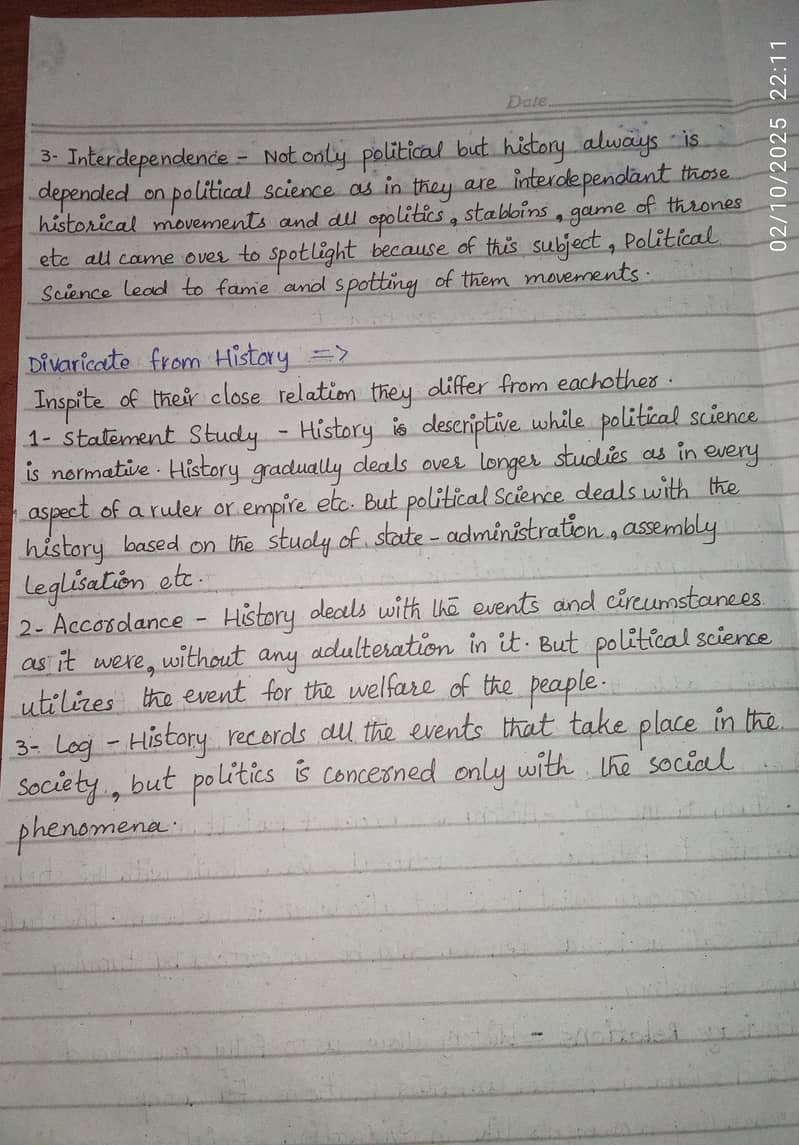 Date
3- Interdependence - Not only political but history always is
depended on political science as in they are interdependant those
historical movements and all opolitics, stabbins, game of thrones
etc all came over to spotlight because of this subject, Political
Science lead to fame and spotting of them movements.
Divaricate from History =>
Inspite of their close relation they differ from eachother.
1- Statement Study - History is descriptive while political science
is normative. History gradually deals over longer studies as in every
aspect of a ruler or empire etc. But political science deals with the
history based on the study of state-administration, assembly
Leglisation etc.
2- Accordance - History deals with the events and circumstances
as it were, without any adulteration in it. But political science
utilizes the event for the welfare of the peaple.
3- Log - History records all the events that take place in the
society, but politics is concerned only with the social
phenomena.
02/10/2025 22:11